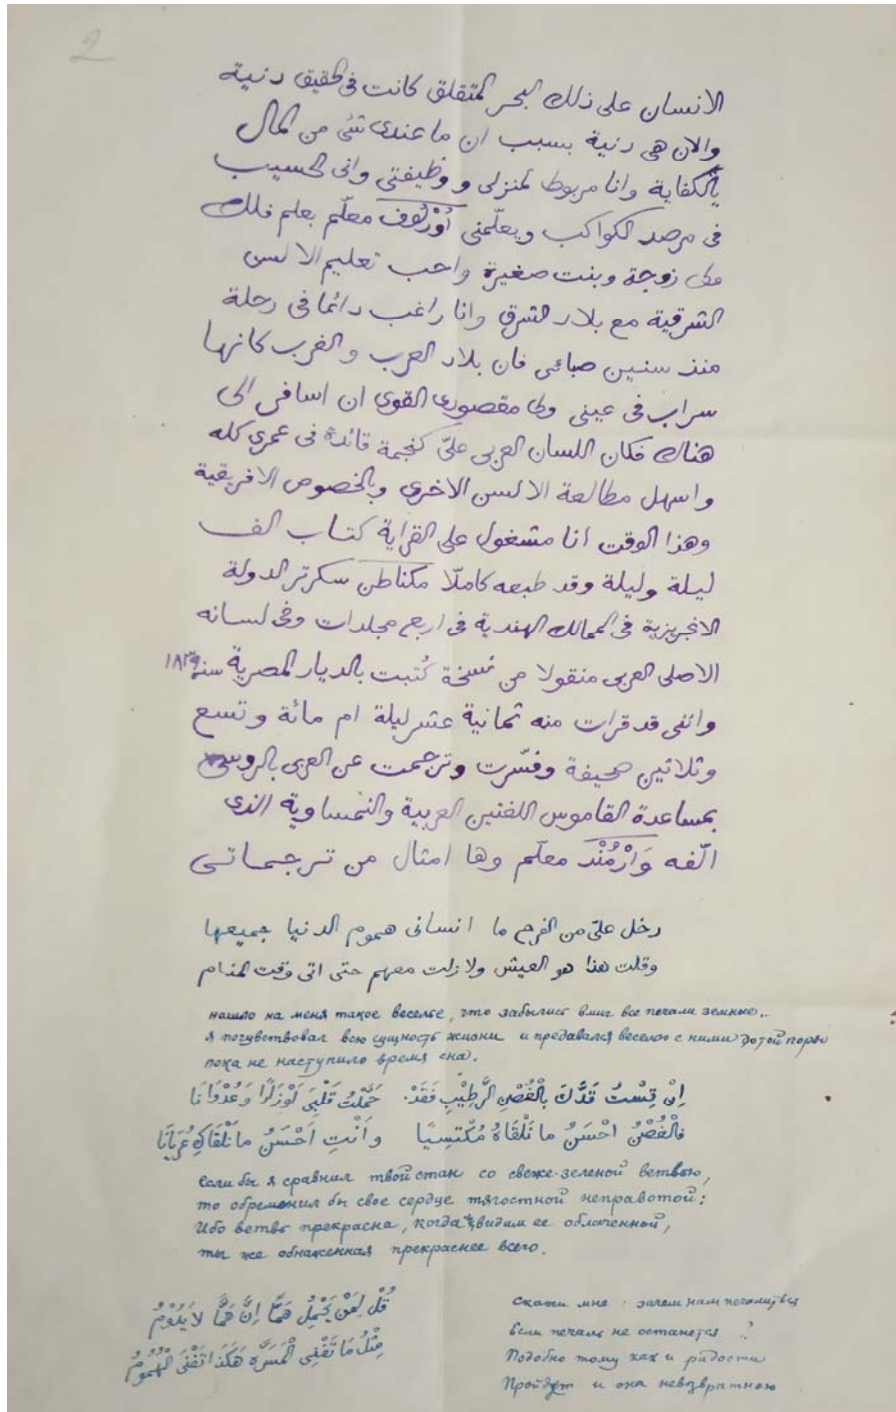 2
الانسان على ذلك البحر المتقلق كانت فى الحقيق دنية
والان هى دنية بسبب ان ما عندى شئ من المال
بالكفاية وانا مربوط لمنزلى و وظيفتى وانى الحسيب
فى مرصد الكواكب ويعلّمنى أُوْرْلُوف معلّم بعلم فلك
ولى زوجة وبنت صغيرة واحب تعليم الالسن
الشرقية مع بلاد الشرق وانا راغب دائما فى رحلة
منذ سنين صبائى فان بلاد العرب والغرب كانها
سراب فى عينى ولى مقصودى القوى ان اسافر الى
هناك فكان اللسان العربى علىّ كنجمة قائدة فى عمرى كله
واسهل مطالعة الالسن الاخرى وبالخصوص الافريقية
وهذا الوقت انا مشغول على القراية كتاب الف
ليلة وليلة وقد طبعه كاملًا مكناطن سكرتر الدولة
الانجريزية فى الممالك الهندية فى اربع مجلدات وفى لسانه
الاصلى العربى منقولا من نسخة كُتبت بالديار المصرية سنة ١٨٣٩
واننى قد قرات منه ثمانية عشر ليلة ام مائة وتسع
وثلاثين صحيفة وفسّرت وترجمت عن العربى بالروسى
بمساعدة القاموس اللغتين العربية والنمساوية الذى
الّفه وَارْمُنْد معلّم وها امثال من ترجماتى
دخل علىّ من الفرح ما انسانى هموم الدنيا جميعها
وقلت هذا هو العيش ولازلت معهم حتى اتى وقت المنام
нашло на меня такое веселье, что забылись вмиг все печали земные..
я почувствовал всю сущность жизни и предавался веселью с ними до той поры
пока не наступило время сна.
اِنْ قِسْتُ قَدَّكَ بِالْغُصْنِ الرَّطِيْبِ فَقَدْ حَمَّلْتُ قَلْبِىَ وَعُدْوَانَا
فَالْغُصْنُ احْسَنُ ما نَلْقَاهُ مُكْتَسِيًا وانْتِ اَحْسَنُ ما نَلْقَاكِ عُرْيَانَا
если бы я сравнил твой стан со свеже-зеленой ветвью,
то обременил бы свое сердце тягостной неправотой:
Ибо ветвь прекрасна, когда видим ее облаченной,
ты же обнаженная прекраснее всего.
قُلْ لِمَنْ يَحْمِلُ هَمًّا اِنَّ هَمًّا لاَيَدُوْمُ
مِثْلُ مَا تَفْنِى الْمَسَرَّه هَكَذَا تَفْنَى الْهُمُوْمُ
Скажи мне : зачем нам печалиться
Если печаль не останется ?
Подобно тому как и радости
Пройдет и она невозвратною